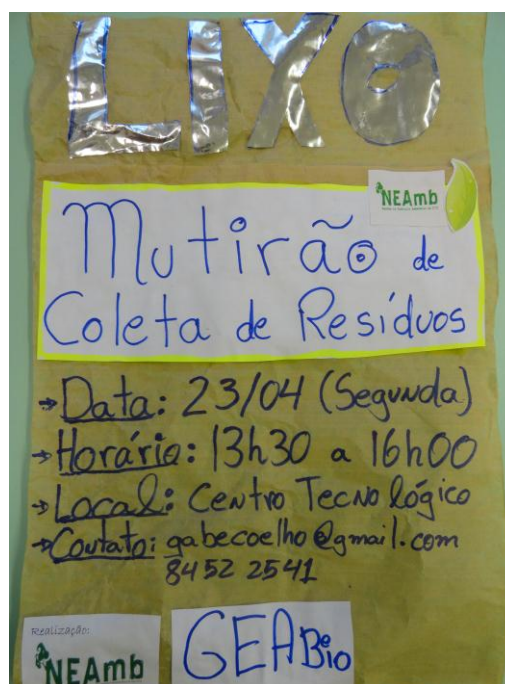 LIXO
NEAmb
Mutirão de
Coleta de Resíduos
→Data: 23/04 (Segunda)
→Horário: 13h30 a 16h00
→Local: Centro Tecnológico
→Contato: gabecoelho@gmail.com
8452 2541
Realização:
NEAmb
GEABio